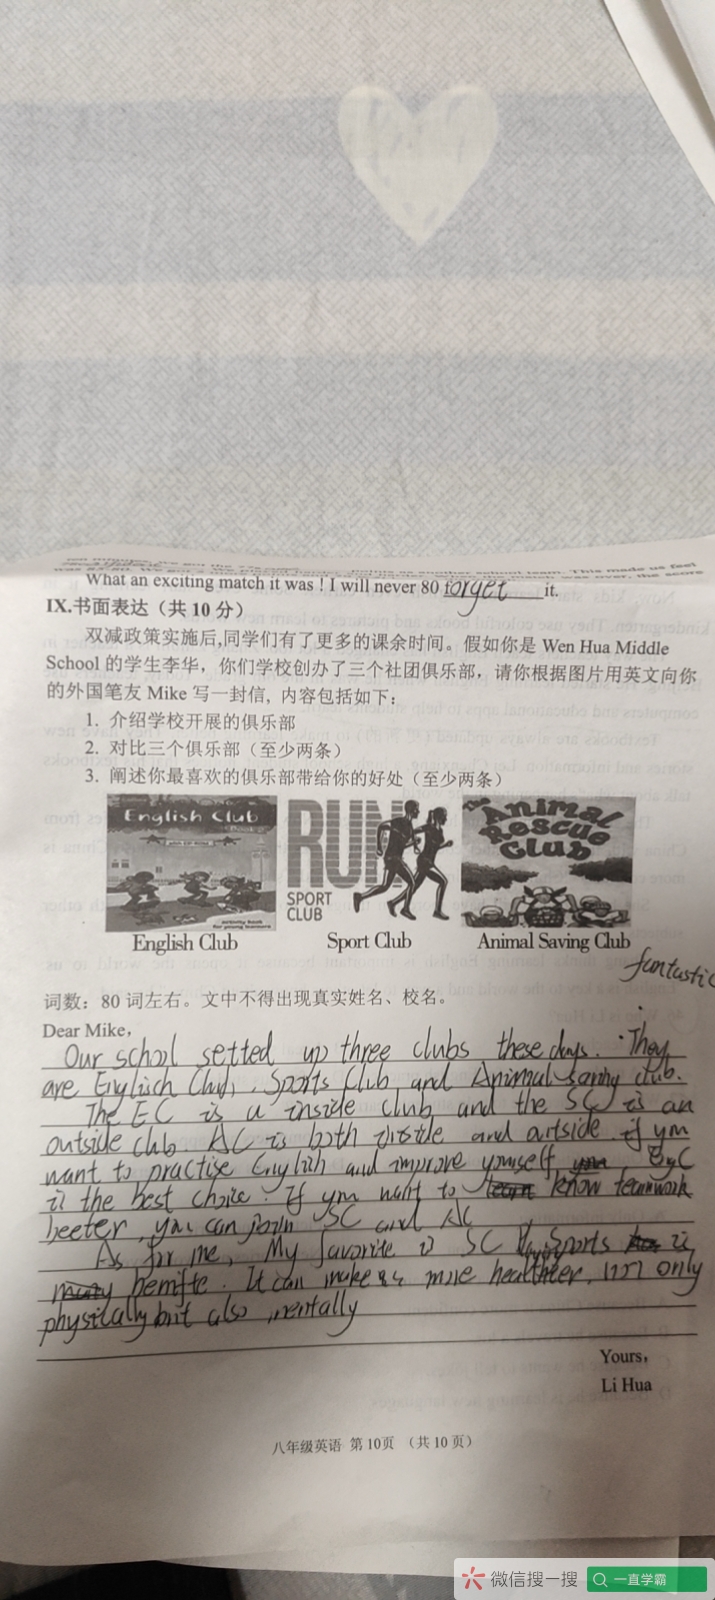 What an exciting match it was ! I will never 80 forget it.
IX.书面表达（共 10 分）
双减政策实施后,同学们有了更多的课余时间。假如你是 Wen Hua Middle
School 的学生李华，你们学校创办了三个社团俱乐部，请你根据图片用英文向你
的外国笔友 Mike 写一封信, 内容包括如下：
1. 介绍学校开展的俱乐部
2. 对比三个俱乐部（至少两条）
3. 阐述你最喜欢的俱乐部带给你的好处（至少两条）
English Club
RUN
SPORT
CLUB
The Animal
Rescue
Club
English Club
Sport Club
Animal Saving Club
fantastic
词数：80 词左右。文中不得出现真实姓名、校名。
Dear Mike，
Our school setted up three clubs these days. They
are English Club, Sports Club and Animal saving club.
The EC is a inside club and the SC is an
outside club. AC is both inside and outside. if you
want to practise English and improve yourself, EC
is the best choice. If you want to know teamwork
beeter, you can join SC and AC
As for me, My favorite is SC Playing Sports is
benifte. It can make us more healthier, not only
physically but also mentally
Yours，
Li Hua
八年级英语 第10页 （共 10 页）
微信搜一搜
一直学霸